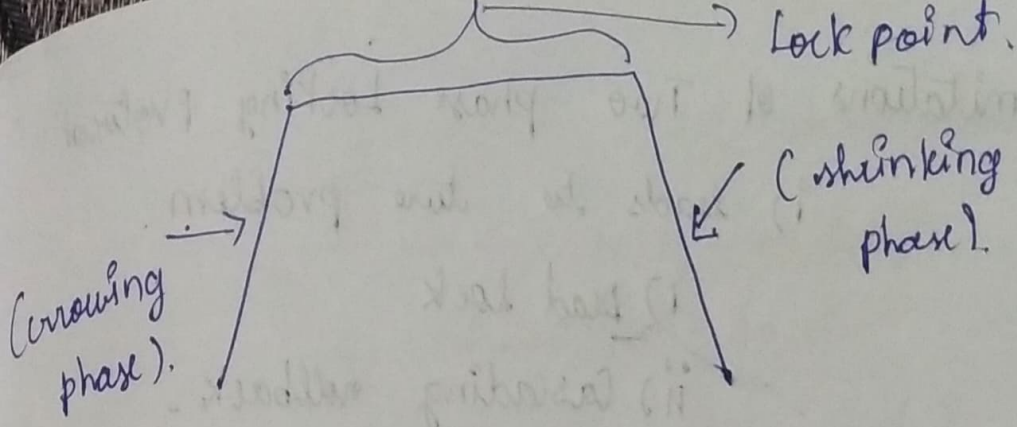 Lock point.
(shrinking
phase).
(Growing
phase).